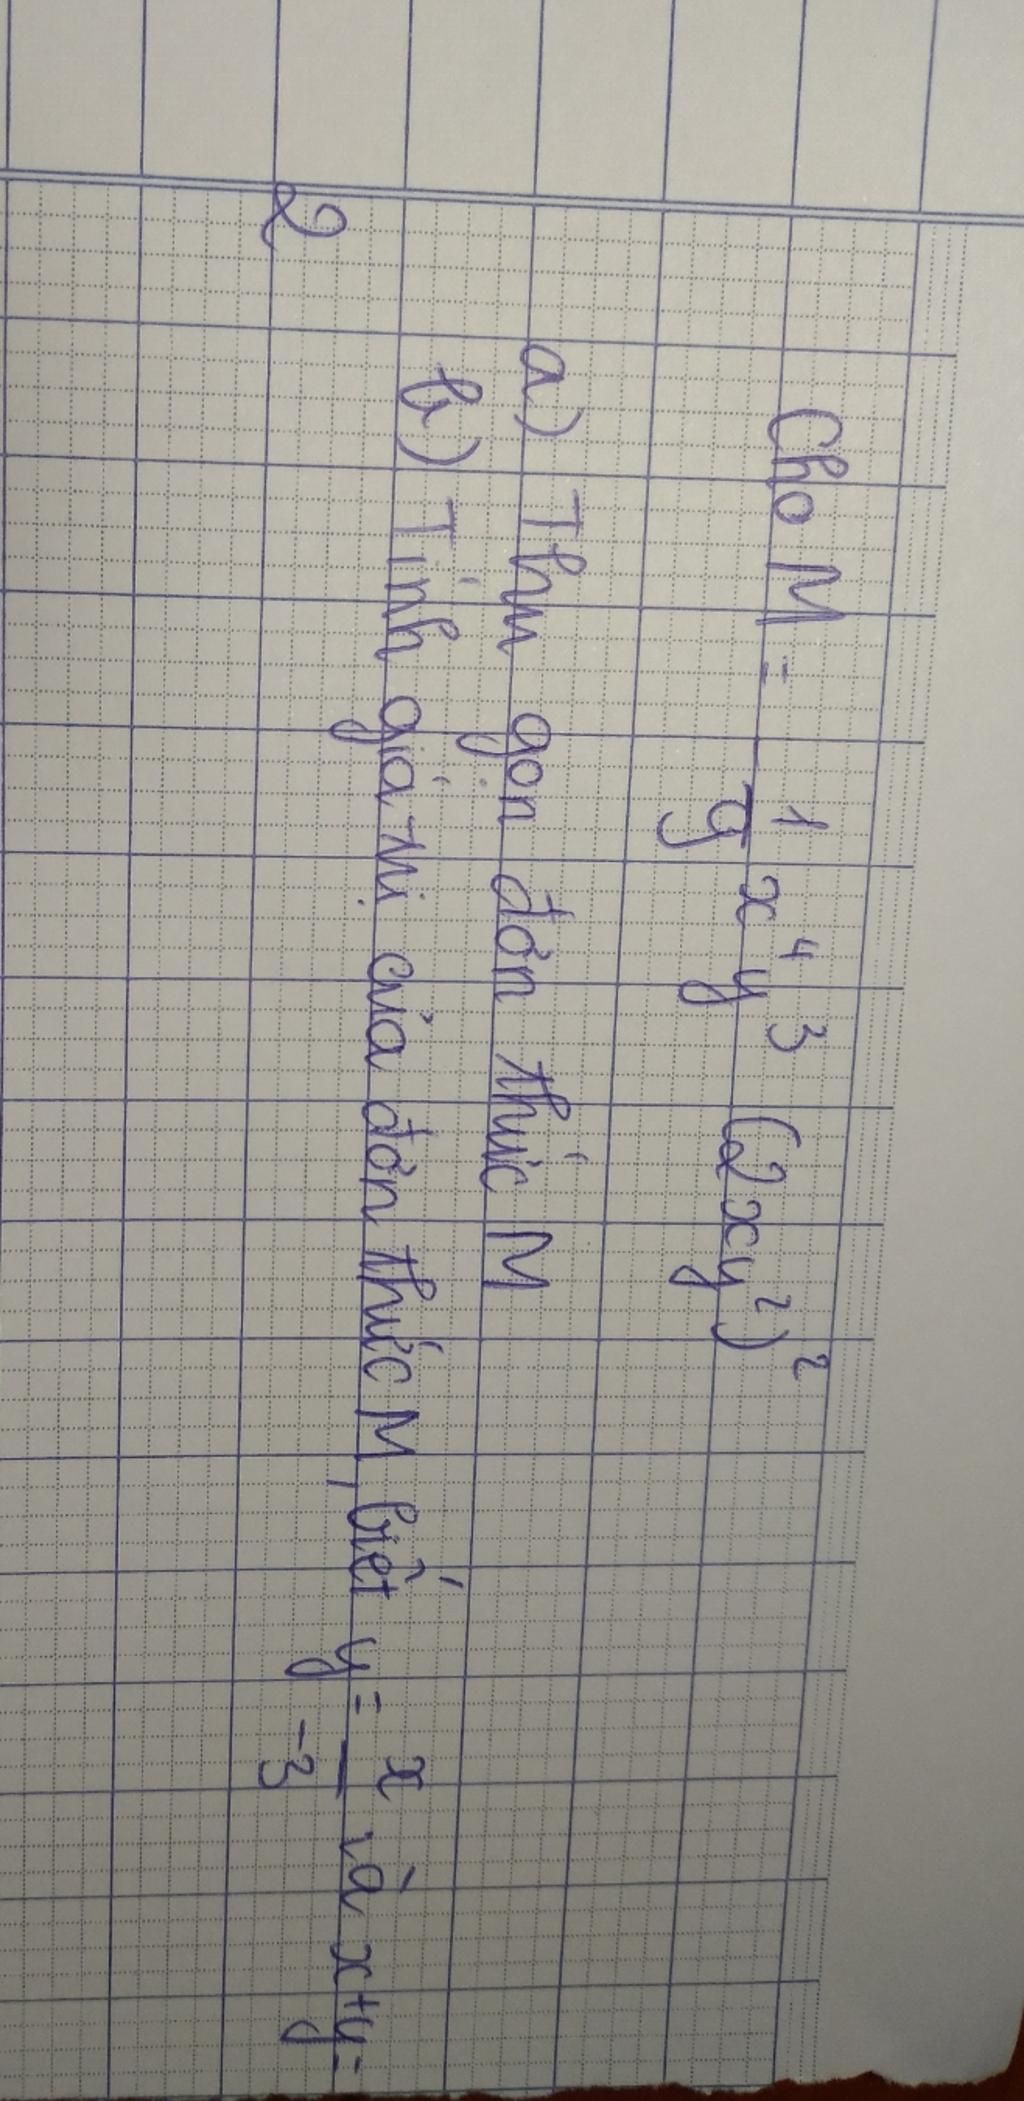 Cho M = - 1/9 x⁴y³ (2xy²)²
a) Thu gọn đơn thức M
b) Tính giá trị của đơn thức M, biết y = x/-3 và x+y =
2